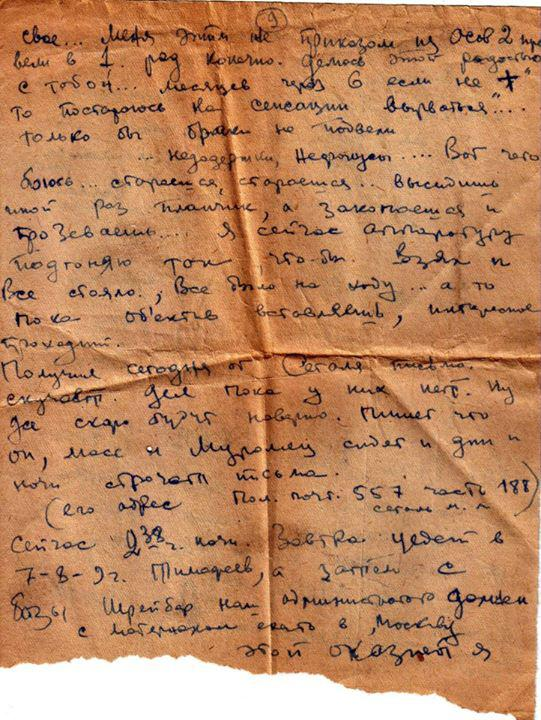 9
свое... Меня этим же приказом из Осов 2 пре
вели в 1. ряд конечно. Делюсь этой радостью
с тобой... Месяцев через 6 если не "+"
то постараюсь на сенсации вырваться"....
только бы браки не подвели
... недодержки, Нефокусы.... Вот чего
боюсь... стараешься, стараешься... высидишь
иной раз планчик, а закопаешься и
прозеваешь.... Я сейчас аппаратуру
подгоняю так, что-бы. Взял и
Все стояло., Все было на ходу... а то
пока об'ектив вставляешь, интересное
проходит.
Получил сегодня от Сегаля письмо.
скучает. Дел пока у них нет. Ну
да скоро будут наверно. Пишет что
он, Масс и Муромец сидят и дни и
ночи строчат письма.
(его адрес Пол. почт. 557 часть 188)
Сегаль М. Л.
Сейчас 2 38 ч. ночи. Завтра уедет в
7-8-9 ч. Тимофеев, а затем с
базы Шрейбер наш администратор должен
с материалом ехать в Москву
этой оказией я